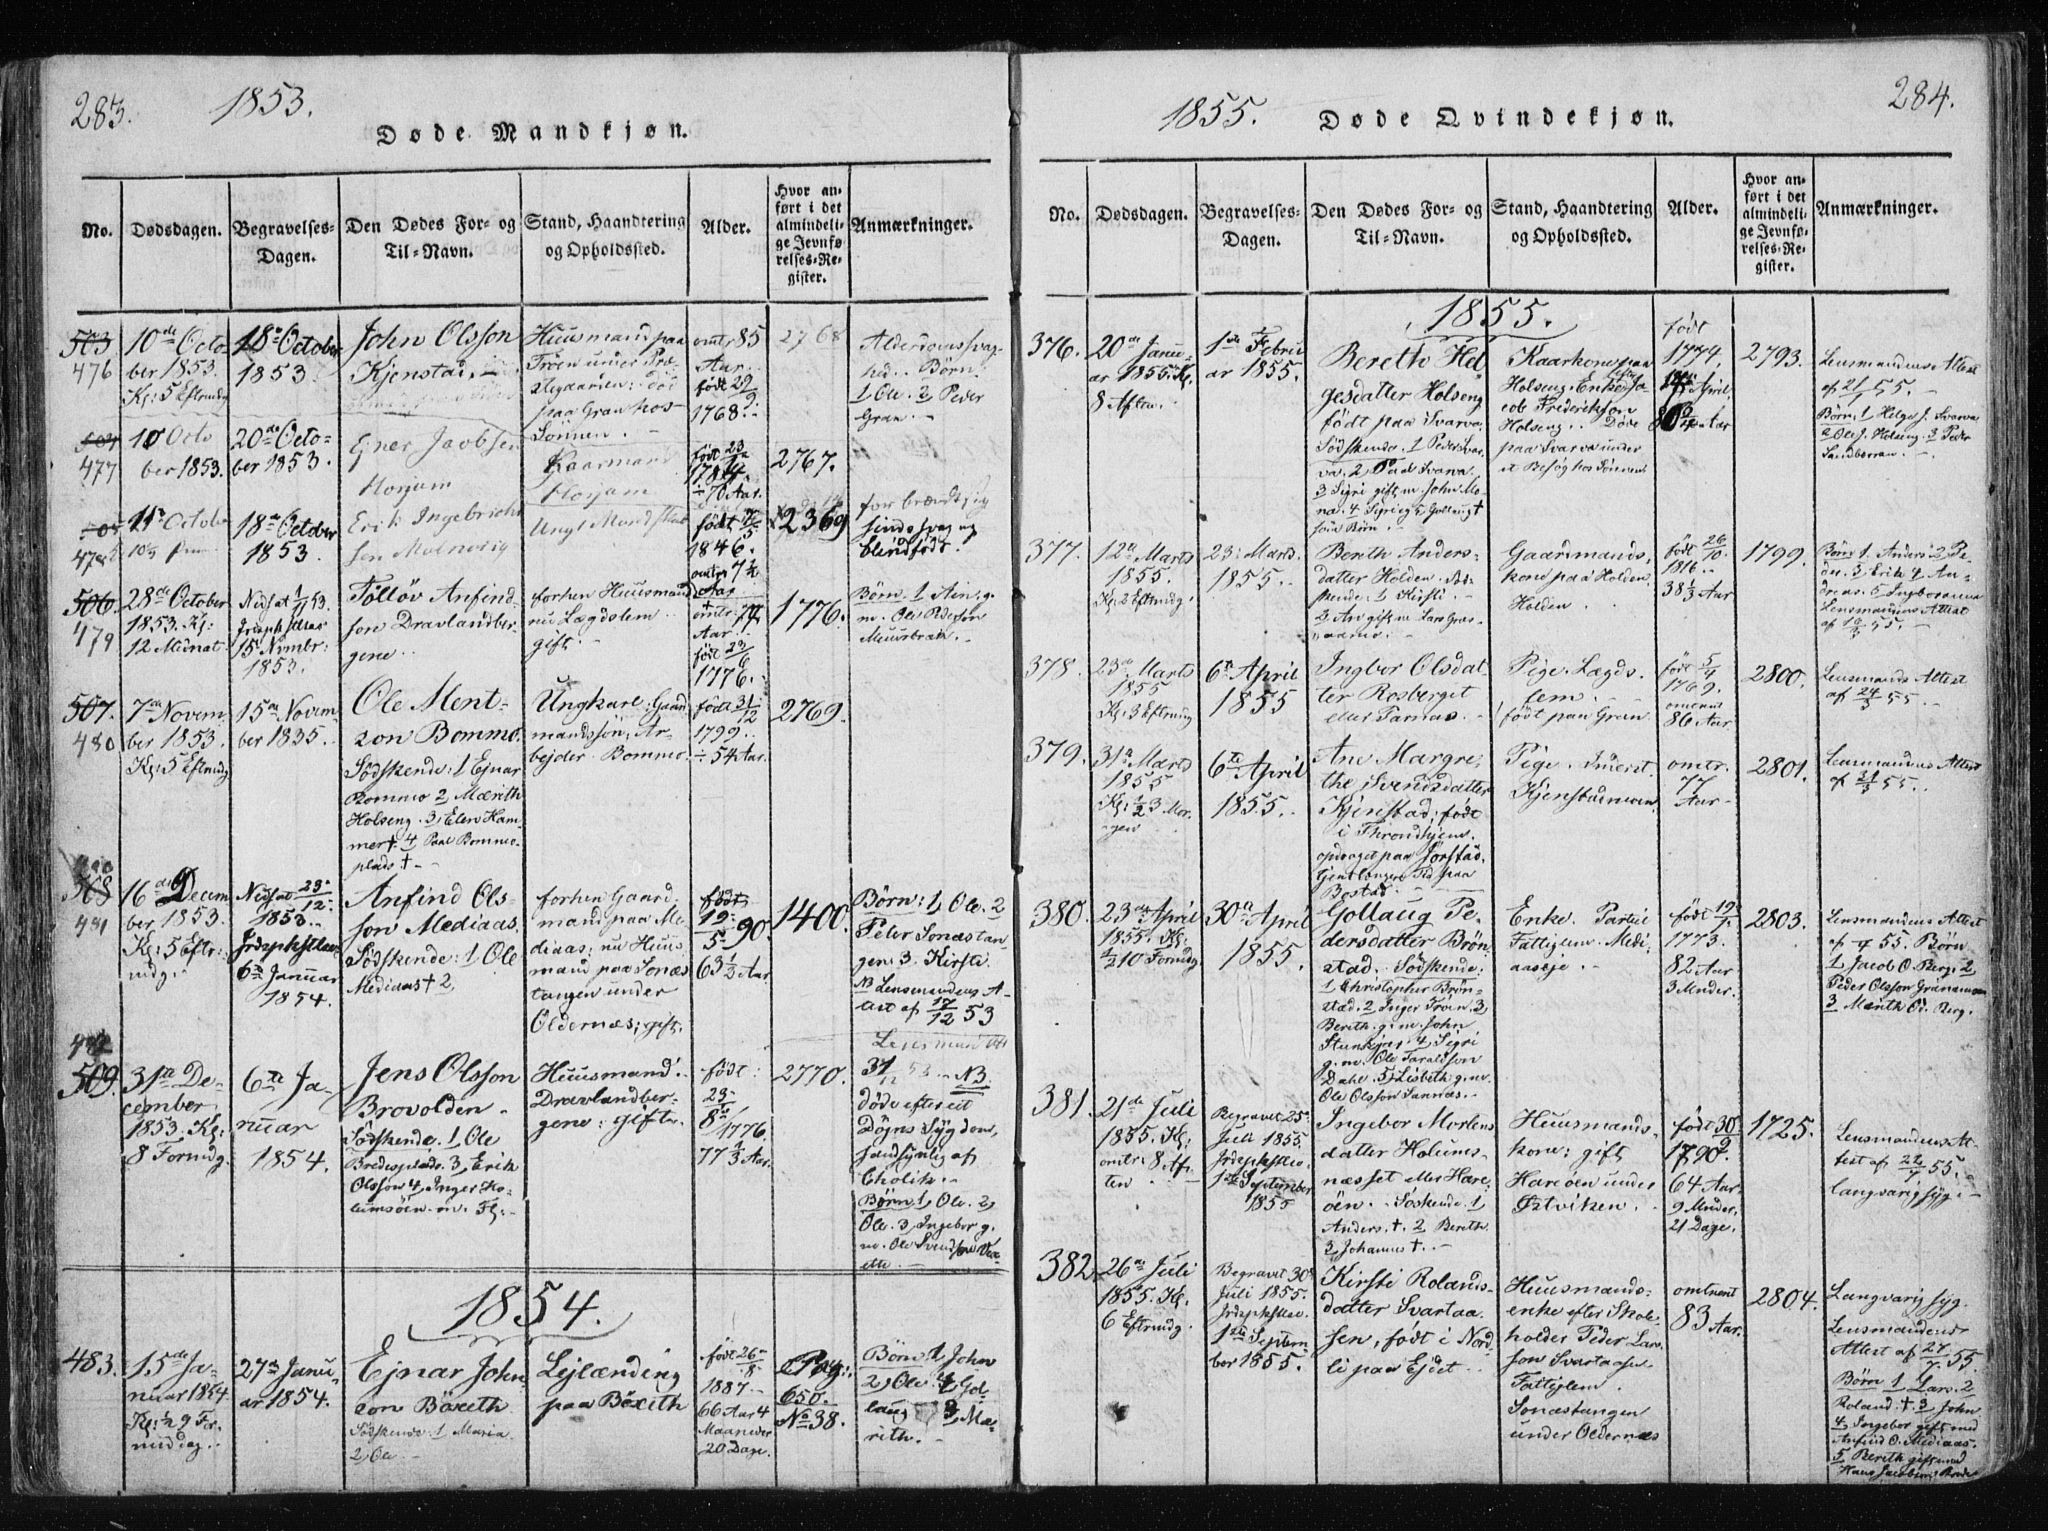 283.
1853.
Døde Mandkjøn.
No.
Dødsdagen.
Begravelses-
Dagen.
Den Dødes For- og
Til-Navn.
Stand, Haandtering
og Opholdssted.
Alder.
Hvor an-
ført i det
almindeli-
ge Jevnfø-
relses-Re-
gister.
Anmærkninger.
503
476
10de Octo-
ber 1853.
Kl: 5 Eftmdg
18de October
1853.
John Olsson
Kjenstad.
Huusmand paa
Trøen under Præ-
stegaarden; død
paa Gran hos
Sønnen.
omtr 85
Aar.
født 29/9
1768.
2768
Alderdomssvag-
hed. Børn:
1 Ole. 2 Peder
Gran.
477
10 Octo
ber 1853.
20de Octo-
ber 1853.
Ejner Jacobsen
Horjem
Kaarmand
Horjem
født 23/
178
70 Aar.
2767.
478
11te Octobe
18de October
1853.
Erik Ingebrigt
sen Molnevig
født
1846.
omtr 7 1/2
Aar
2369
for brændt sig
sindssvag og
blindfødt.
506.
479
28de October
1853. Kl:
12 Midnat.
Nedsat 1/11 53.
Jrdspkstlas
15 Novmbr:
1853.
Følløv Anfind-
son Dravlandber-
gene.
forhen Huusmand
nu Lægdslem.
gift.
omtr: 77
Aar.
født 23/6
1776.
1776.
Børn 1 Ain, g.
m. Ole Pederson
Muusbrak.
507.
480
7de Novem
ber 1853.
Kl: 5 Eftmdg
15de Novem-
ber 1835.
Ole Ment-
zon Bommo.
Södskende: 1 Ejnar
Bommo 2 Mærith
Holseng. 3 Elen Ham-
mer†. 4 Paul Bommo-
plads †
Ungkarl; Gaard
mandssön; Ar-
bejder Bommo.
født 31/12
1799.
54 Aar.
2769.
508
481
16de Decem
ber 1853.
Kl: 5 Eftr:
mdg.
Nedsat 23/12
1853.
Jrdspkstlav
6te Januar
1854.
Anfind Ols-
son Mediaas.
Södskende: 1 Ole
Mediaas † 2
forhen Gaard
mand paa Me-
diaas; nu Huus
mand paa Sonæs
tangen under
Oldernæs; gift.
født
19/5 90.
63 1/2 Aar
1400.
Børn: 1 Ole. 2
Peter Sonæstan
gen. 3 Kirsti.
NB Lensmandens A-
ttest af 17/12 53
482
509.
31te De-
cember
1853. Kl:
8 Formdg.
6te Ja-
nuar
1854.
Jens Olsson
Brovolden
Södskende. 1 Ole
Bredesplads. 3 Erik
Olsson 4, Inger Ho-
lumsöen. m. Fl:
Huusmand.
Dravlandber-
gene; gift.
født:
23/8 1776.
77 1/3 Aar.
2770.
Lensmand Att
31/12 53. NB
døde efter eit
Døgns Sygdom,
sandsynlig af
Cholik.
Børn: 1 Ole. 2
Ole. 3 Ingebor g.
m. Ole Svendson
1854.
483.
15de Ja-
nuar 1854.
Kl: 1/2 9 For-
middag.
27de Janu
ar 1854.
Ejnar John
son Böxeth
Södskende: 1 Maria
2 Ole.
Lejlænding
paa Böxeth
født 26/8
1887
66 Aar 4
Maaneder
20 Dage.
Pag:
650.
No 38.
Børn 1 John
2 Ole. 4 Gol-
laug 3 Ma-
rith.
284.
1855.
Døde Qvindekjøn.
No.
Dødsdagen.
Begravelses-
Dagen.
Den Dødes For- og
Til-Navn.
Stand, Haandtering
og Opholdssted.
Alder.
Hvor an-
ført i det
almindeli-
ge Jevnfø-
relses-Re-
gister.
Anmærkninger.
1855.
376.
20de Janu-
ar 1855. Kl.
8 Aften.
1ste Febru
ar 1855.
Bereth Hel
gesdatter Holseng
født paa Svarva.
Södskende. 1 Peder Svar
va. 2 Paul Svarva.
3 Sigri gift m. John Mo-
na. 4 Sigri og 5 Gollaug †
Kaarkone paa
Holseng. Enke efter Ja-
cob Frederikson
Holseng. Døde
paa Svarva under
et Besøg hos Sønnen
født
1774.
April
Aar
2793.
Lensmandens Attest
af 21/1 55.
Børn: 1 Helge J. Svarva
2 Ole J. Holseng. 3 Peder
Sandberran.
377.
12te Marts
1855.
Kl: 2 Eftmdg.
23: Marts
1855.
Berith Anders-
datter Holden. Sö-
skende: 1 Kirsti.
2 An gift m Lars Græs
aamo.
Gaardmands-
kone paa Holden
Holden.
født 26/10
1816.
38 1/3 Aar
1799.
Børn 1. Anders 2 Pe-
der. 3 Erik 4 An-
dreas. 5 Ingboranna
Lensmandens Attest
af 16/3 55.
378.
23de Marts
1855
Kl: 3 Eftmdg
6te April
1855
Ingbor Olsdat
ter Rosberget
eller Farnas.
Pige. Lægds-
lem.
født paa Gran
født 5/4
1769.
omtrent
86 Aar
2800.
Lensmands Attest
af 24/3 55.
379.
31te Marts
1855
Kl: 1/2 3 Mor-
gen
6te April
1855.
Ane Margre-
the Svendsdatter
Kjenstad; født
i Throndhjem.
opdraget paa Jorstad,
tjent længere Tid paa
Bostad.
Pige. Inderst
Kjenstadmoan
omtr.
77
Aar
2801.
Lensmandens Attest
af 31/3 55.
380.
23de April
1855. Kl:
1/2 10 Formdg
30te April
1855.
Gollaug Pe-
dersdatter Brön
stad. Södskende:
1 Christopher Brön-
stad. 2 Inger Trøen. 3
Bereth. g. m. John
4 Sigri
g. m. Ole Taraldson
Dahl. 5 Lisbeth g. m.
Ole Olsson Sannæs.
Enke. Partiel
Fattiglem. Medi
aaseje.
født 19/1
1773.
82 Aar
3 Mnder.
2803.
Lensmandens Attest
af 55. Børn
1 Jacob O. Berg. 2
Peder Olsson Granamoen
3 Marith Od. Berg.
381.
21de Juli
1855. Kl:
omtr: 8 Af-
ten.
Begravet 25
Juli 1855.
Jrdspkstlav
1ste September
1855
Ingebor Mortens
datter Holums-
næsset eller Hare-
öen. Söskende. 1
Anders. †. 2 Bereth.
3 Johannes †.
Huusmands-
kone; gift
Hareöen under
Østviken.
født 30/9
1790.
64 Aar.
9 Mnder.
21 Dage.
1725.
Lensmandens At-
test af 22/7 55.
langvarig syg.
382.
26de Juli
1855. Kl.
6 Eftmdg.
Begravet 30
Juli 1855.
Jrdspkstlav.
1ste Septem-
ber 1855.
Kirsti Rolands
datter Svartaa-
sen, født i Nord
li paa Ejdet.
Huusmands-
enke efter Skole-
holder Peder Lar-
son Svartaasen
Fattiglem.
Sonæstangen
under Oldernæs
omtrent
83 Aar.
2804.
Langvarig syg.
Lensmandens
Attest af 27/7 55.
Børn 1 Lars. 2
Roland. † 3 John
4 Ingebor gift med
Anfind O. Mediaas.
5 Berith gift med
Hans Jacobson